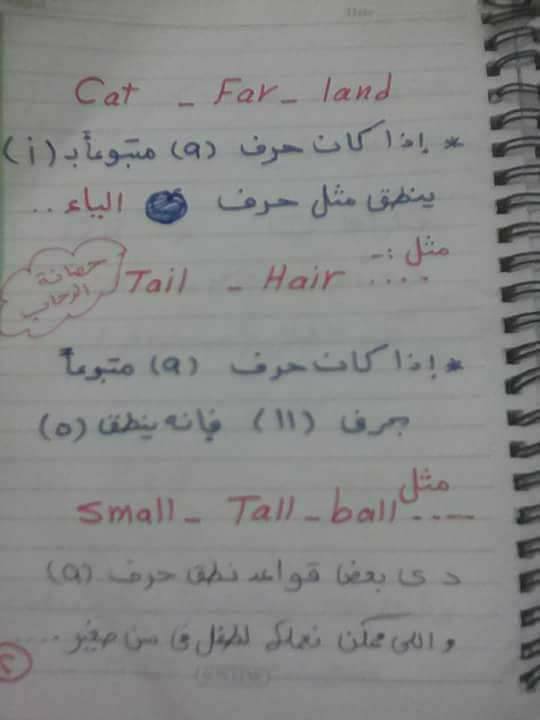 Cat - Far - land
* إذا كان حرف (a) متبوعاً بـ (i)
ينطق مثل حرف الياء ..
مثل :-
Tail - Hair ....
حضانة
الرحاب
* إذا كان حرف (a) متبوعاً
بحرف (ll) فإنه ينطق (o)
مثل
small - Tall - ball ....
دى بعض قواعد نطق حرف (a)
واللى ممكن نعملها لطفل فى سن صغير ...
٢